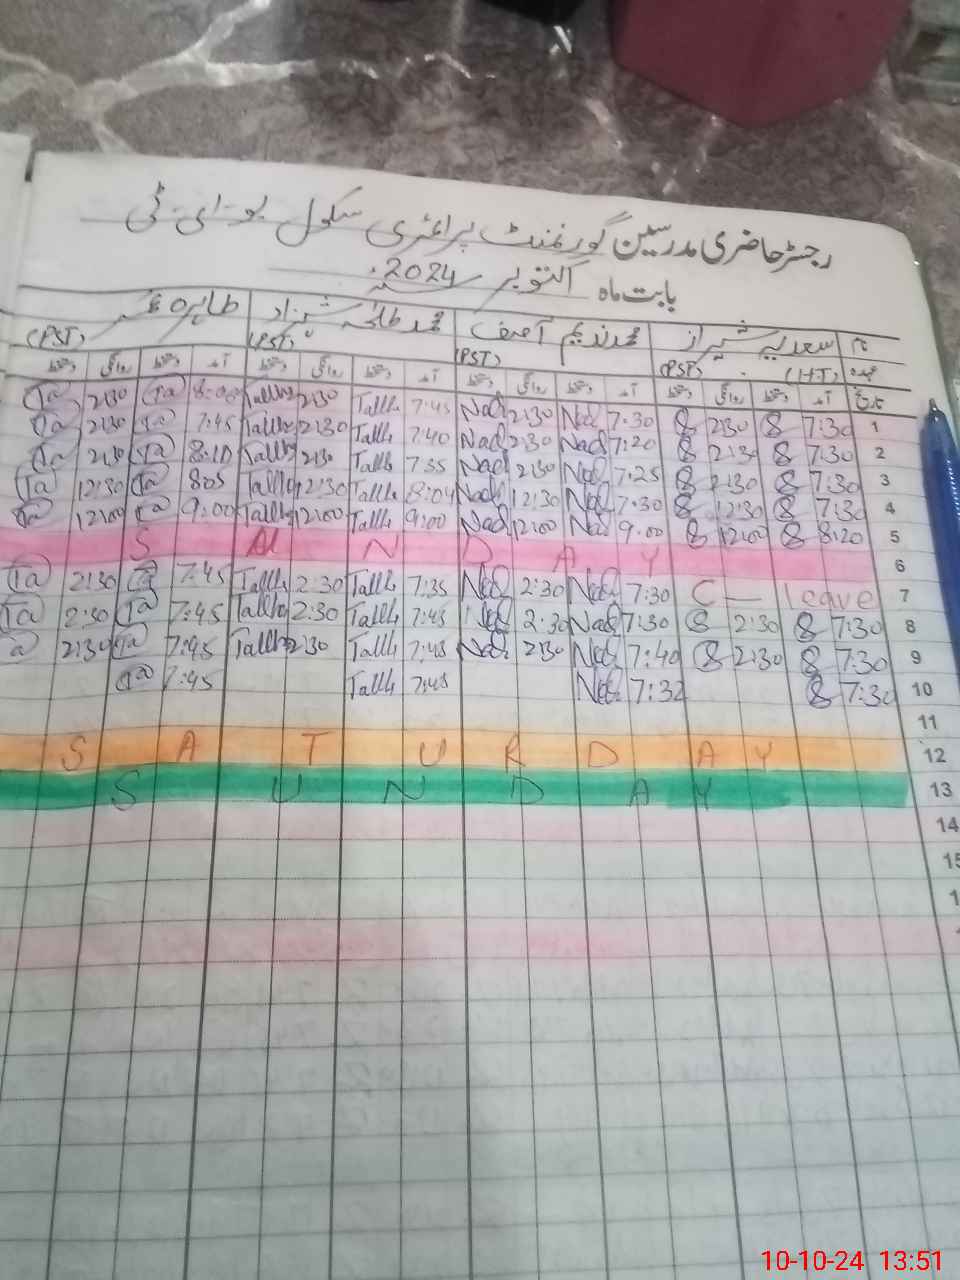 رجسٹر حاضری مدرسین گورنمنٹ پرائمری سکول یو-ای-ٹی
بابت ماہ اکتوبر 2024
نام سعدیہ شیراز محمد ندیم آصف محمد طلحہ شہزاد طاہرہ
عہدہ (HT) (PST) (PST) (PST) (PST)
تاریخ آمد دستخط روانگی دستخط آمد دستخط روانگی دستخط آمد دستخط روانگی دستخط آمد دستخط روانگی دستخط
1 7:30 8 2:30 8 7:30 Nad 2:30 Nad 7:45 Talh 2:30 Talh 8:00 Ta 2:30 Ta
2 7:30 8 2:30 8 7:20 Nad 2:30 Nad 7:40 Talh 2:30 Talh 7:45 Ta 2:30 Ta
3 7:30 8 2:30 8 7:25 Nad 2:30 Nad 7:35 Talh 2:30 Talh 8:10 Ta 2:30 Ta
4 7:30 8 12:30 8 7:30 Nad 12:30 Nad 8:04 Talh 12:30 Talh 8:05 Ta 12:30 Ta
5 8:20 8 12:00 8 9:00 Nad 12:00 Nad 9:00 Talh 12:00 Talh 9:00 Ta 12:00 Ta
6 S U N D A Y
7 C — leave 7:30 Nad 2:30 Nad 7:35 Talh 2:30 Talh 7:45 Ta 2:30 Ta
8 7:30 8 2:30 8 7:30 Nad 2:30 Nad 7:45 Talh 2:30 Talh 7:45 Ta 2:30 Ta
9 7:30 8 2:30 8 7:40 Nad 2:30 Nad 7:45 Talh 2:30 Talh 7:45 Ta 2:30 a
10 7:30 8 7:32 Nad 7:45 Talh 7:45 Ta
11
12 S A T U R D A Y
13 S U N D A Y
14
15
10-10-24 13:51